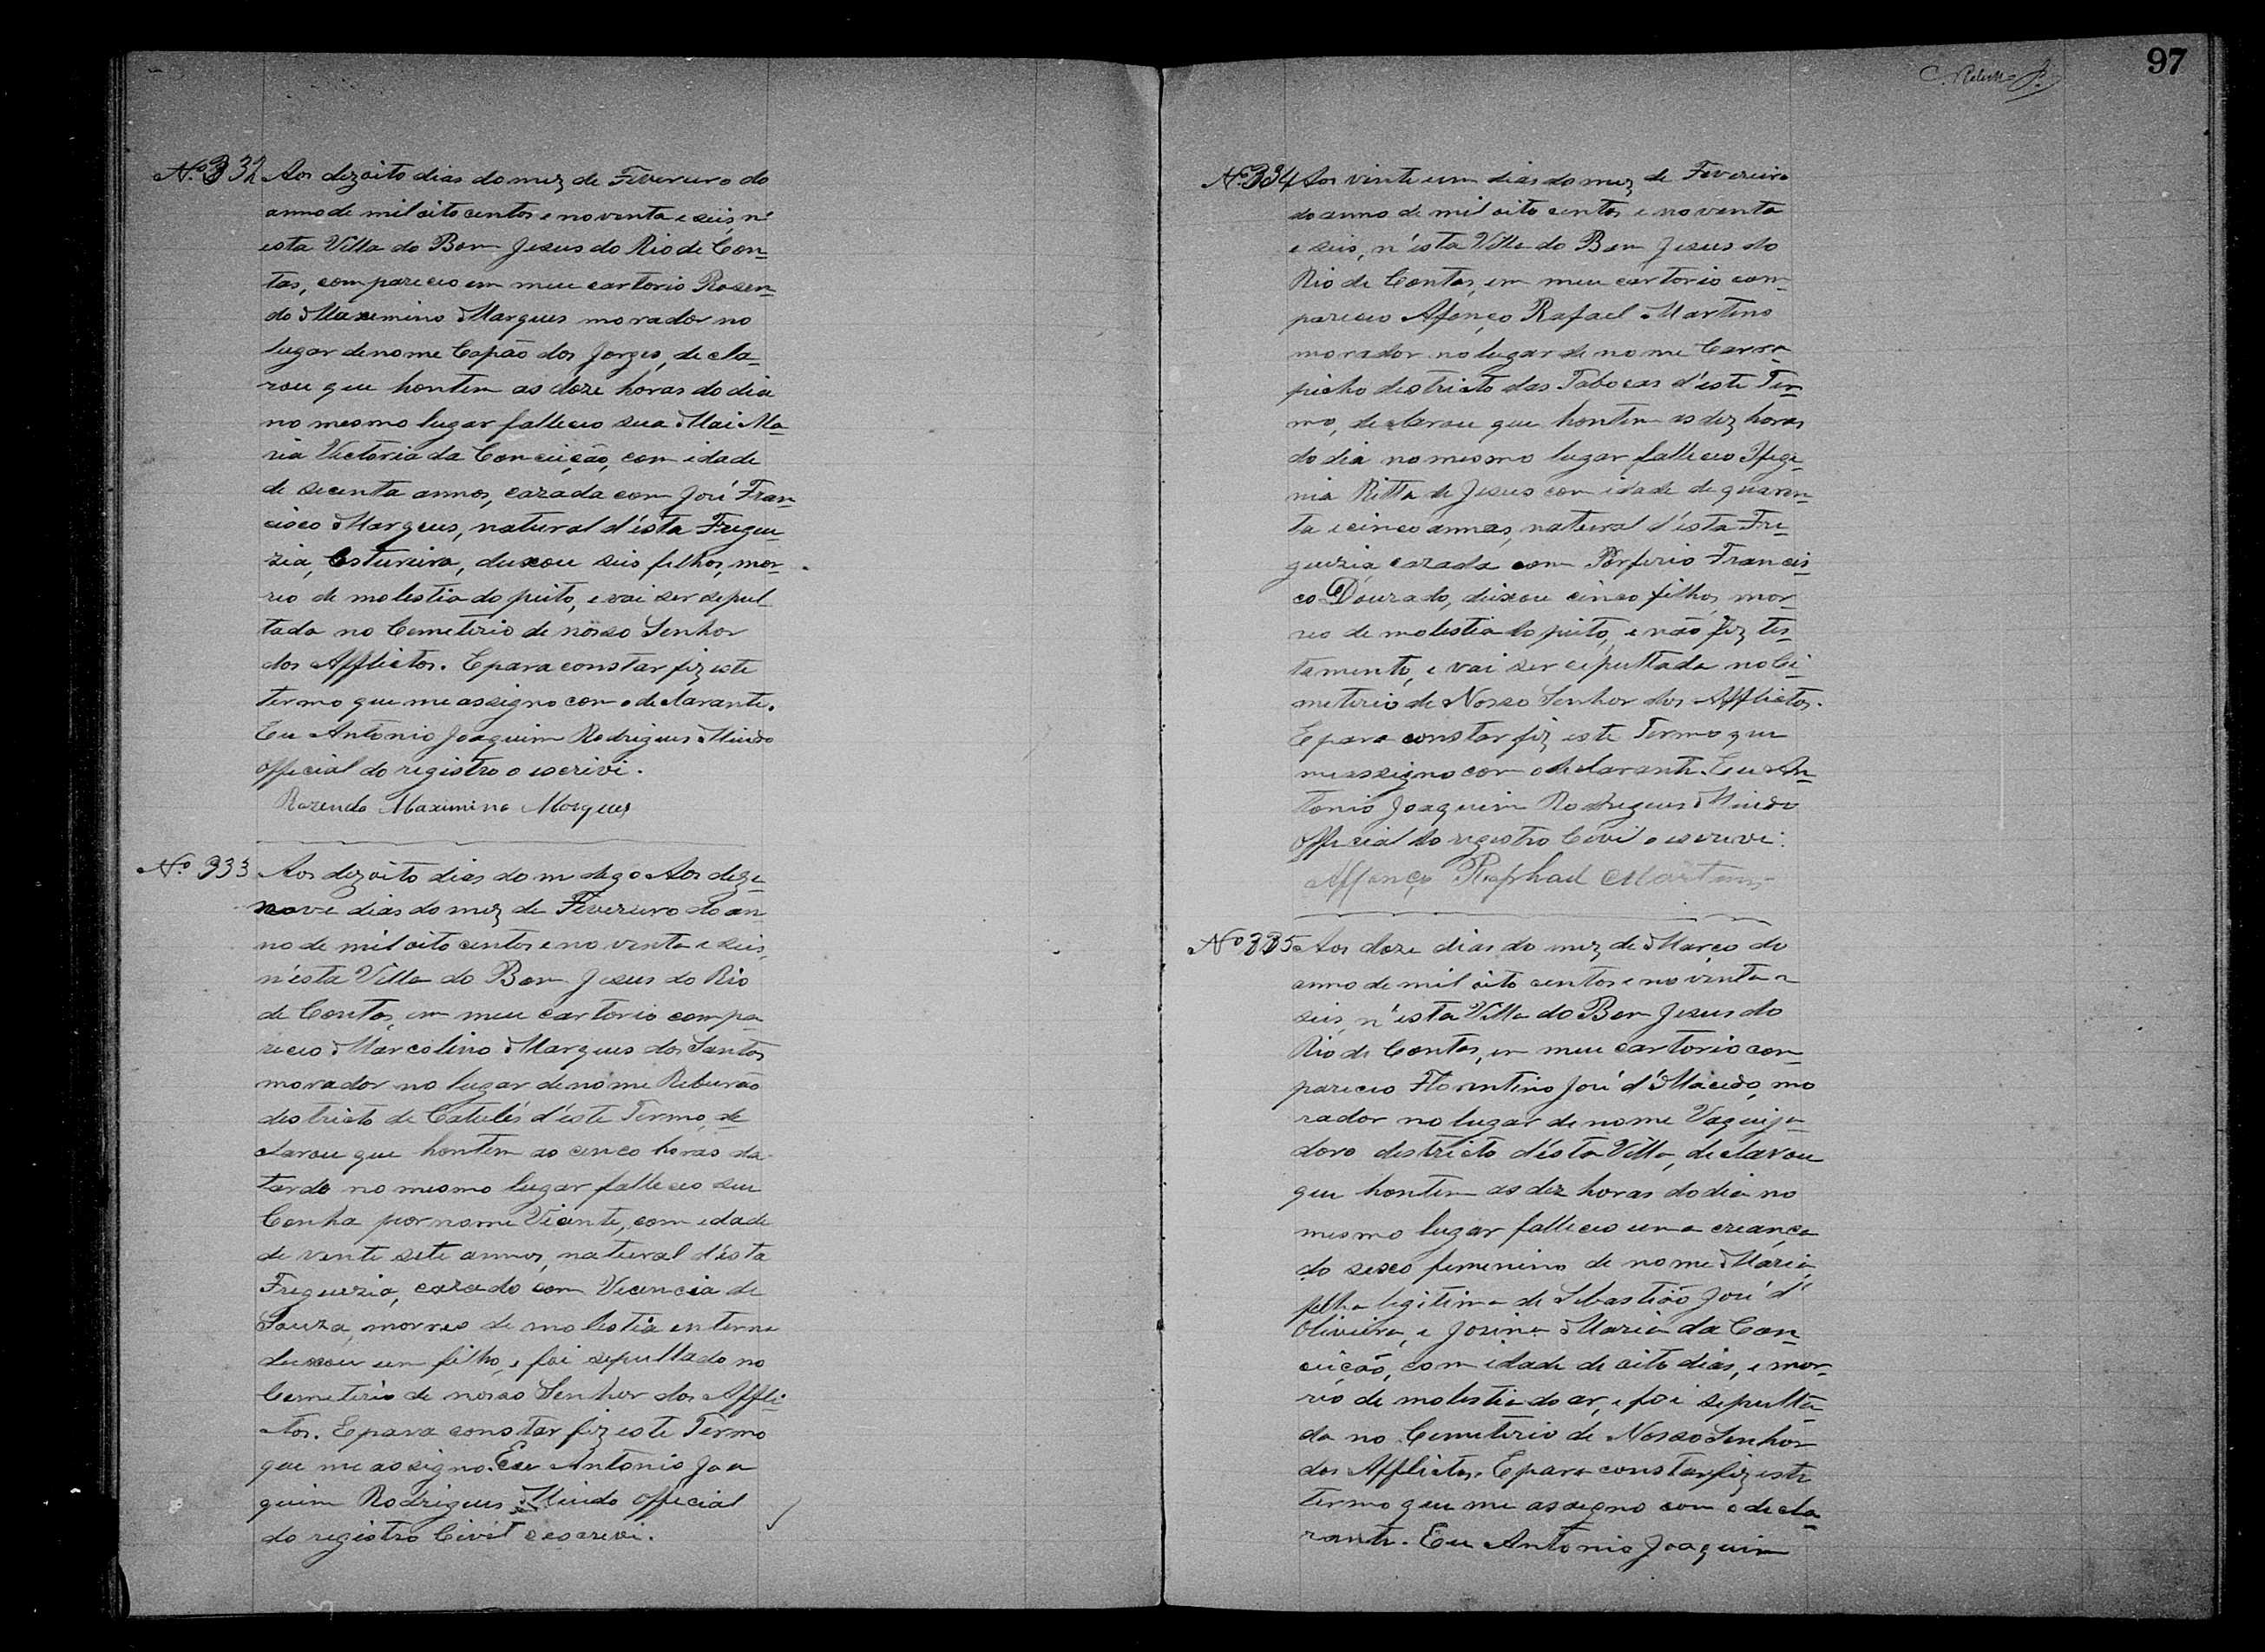 Nº 332 Aos dezoito dias do mez de Fevereiro do
anno de mil oito centos e noventa e seis, n'
esta Villa do Bom Jesus do Rio de Con-
tas, compareceo em meu cartorio Rosen-
do Maximino Marques morador no
lugar de nome Capão dos Jorges, decla-
rou que hontem as doze horas do dia
no mesmo lugar falleceo sua Mai Ma-
ria Victoria da Conceição, com idade
de secenta annos, cazada com José Fran-
cisco Marques, natural d'ésta Fregue-
zia, Costureira, deixou seis filhos, mor-
reo de molestia do peito, e vai ser sepul-
tada no Cemeterio de nosso Senhor
dos Afflictos. E para constar fiz este
termo que me assigno com o declarante.
Eu Antonio Joaquim Rodrigues
official do registro o escrivi.
Rozendo Maximino Marques
Nº 333 Aos dezoito dias do m digo Aos deze-
nove dias do mez de Fevereiro do an
no de mil oito centos e noventa e seis,
n'esta Villa do Bom Jesus do Rio
de Contas, em meu cartorio compa-
receo Marcolino Marques dos Santos
morador no lugar de nome Reberão
destricto de Catulés d'éste Termo, de
clarou que hontem as cinco horas da
tarde no mesmo lugar falleceo seu
Conha por nome Vicente, com edade
de vente sete annos, natural d'ésta
Freguezia, cazado com Vicencia de
Souza, morreo de molestia enterna
deixou um filho, e foi sepultado no
Cemeterio de nosso Senhor dos Affli-
ctos. E para constar fiz este Termo
que me assigno. Eu Antonio Joa
quim Rodrigues official
do registro Civil o escrevi.
97
Nº 334 Aos vinte um dias do mez de Fevereiro
do anno de mil oito centos e noventa
e seis, n'ésta Villa do Bom Jesus do
Rio de Contas, em meu cartorio com-
pareceo Afonço Rafael Martins
morador no lugar de nome Carra-
picho destricto das Tabocas d'éste Ter-
mo, declarou que hontem as dez horas
do dia no mesmo lugar falleceo Ifige-
nia Ritta de Jesus com idade de quaren-
ta e cinco annos, natural d'ésta Fre-
guezia, cazada com Porferio Francis-
co Dourado, deixou cinco filhos, mor-
reo de molestia do peito, e não fez tes-
tamento, e vai ser cepultada no Ci-
meterio de Nosso Senhor dos Afflictos.
E para constar fiz este Termo que
me assigno com o declarante. Eu An-
tonio Joaquim Rodrigues
official do registro Civil o escrevi.
Affonço Raphael Martins
Nº 335 Aos doze dias do mez de Março do
anno de mil oito centos e noventa e
seis, n'ésta Villa do Bom Jesus do
Rio de Contas, em meu cartorio com-
pareceo Florentino José d'Macedo, mo
rador no lugar de nome Vaqueja-
doro destricto d'ésta Villa, declarou
que hontem as dez horas do dia no
mesmo lugar falleceo uma creança
do sexo femenino de nome Maria,
filha legitima de Sebastião José d'
Oliveira, e Josina Maria da Con-
ceição, com idade de oito dias, e mor-
reo de molestia do ar, e foi sepulta-
da no Cemeterio de Nosso Senhor
dos Afflictos. E para constar fiz este
termo que me assigno com o decla-
rante. Eu Antonio Joaquim